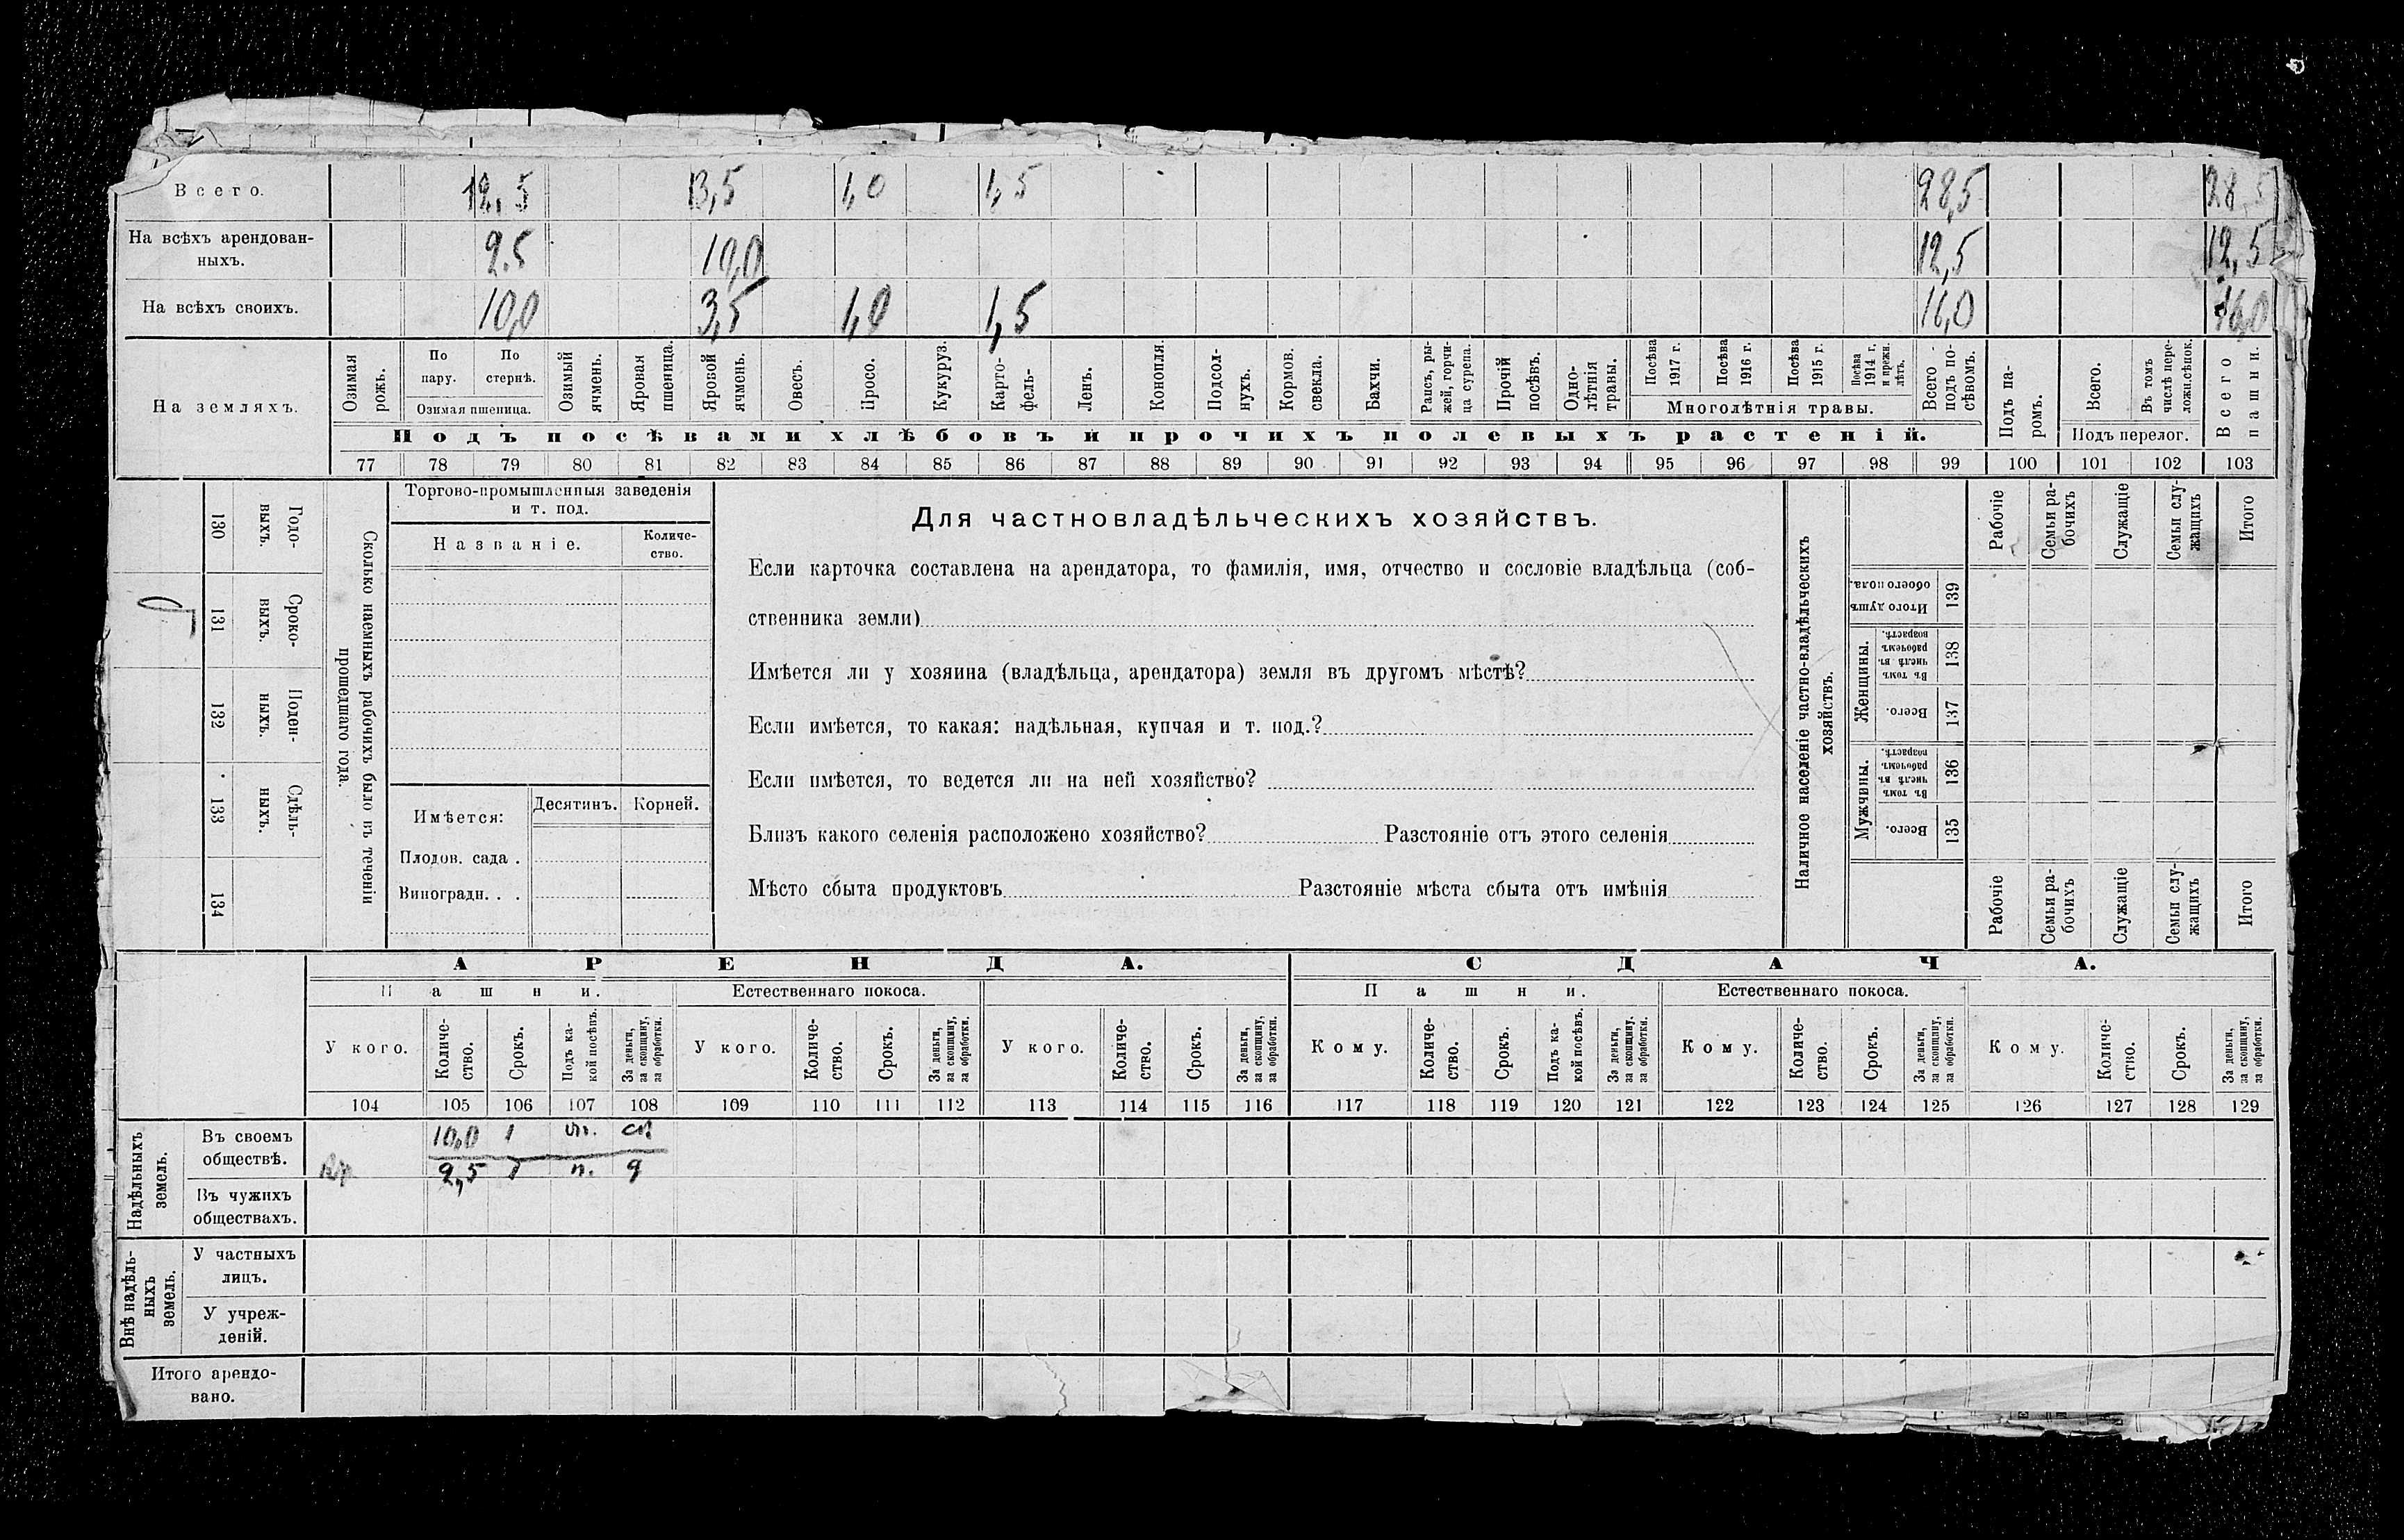 Всего. 12,5 13,5 1,0 1,5 28,5 28,5
На всѣхъ арендован-
ныхъ. 2.5 10,0 12,5 12,5
На всѣхъ своихъ. 10,0 3,5 1,0 1,5 16,0 16,0
На земляхъ.
Озимая рожь.
По пару.
По стернѣ.
Озимая пшеница.
Озимый ячмень.
Яровая пшеница.
Яровой ячмень.
Овесъ.
Просо.
Кукуруз.
Карто-
фель-
Ленъ.
Конопля.
Подсол-
нухъ.
Кормов.
свекла.
Бахчи.
Рапсъ, ры-
жей, горчи-
ца сурепа.
Прочій
посѣвъ.
Одно-
лѣтнія
травы.
Посѣва 1917 г.
Посѣва 1916 г.
Посѣва 1915 г.
Посѣва 1914 г. и прежн. лѣтъ.
Многолѣтнія травы.
Всего подъ по-
сѣвомъ.
Подъ па-
ромъ.
Всего.
Въ томъ
числѣ пере-
ложн.сѣнок.
Подъ перелог.
Всего пашни.
Подъ посѣвами хлѣбовъ и прочихъ полевыхъ растеній.
77 78 79 80 81 82 83 84 85 86 87 88 89 90 91 92 93 94 95 96 97 98 99 100 101 102 103
130 Годо-
выхъ.
131 Сроко-
выхъ.
132 Поден-
ныхъ.
133 Сдѣль-
ныхъ.
134
Сколько наемныхъ рабочихъ было въ теченіи
прошедшаго года.
Торгово-промышленныя заведенія
и т. под.
Названіе.
Количе-
ство.
Имѣется:
Десятинъ. Корней.
Плодов. сада .
Виноградн. . .
Для частновладѣльческихъ хозяйствъ.
Если карточка составлена на арендатора, то фамилія, имя, отчество и сословіе владѣльца (соб-
ственника земли)
Имѣется ли у хозяина (владѣльца, арендатора) земля въ другомъ мѣстѣ?
Если имѣется, то какая: надѣльная, купчая и т. под.?
Если имѣется, то ведется ли на ней хозяйство?
Близъ какого селенія расположено хозяйство? Разстояніе отъ этого селенія
Мѣсто сбыта продуктовъ Разстояніе мѣста сбыта отъ имѣнія
Наличное населеніе частно-владѣльческихъ
хозяйствъ.
Рабочіе
Семьи ра-
бочихъ
Служащіе
Семьи слу-
жащихъ
Итого
Итого душъ
обоего пола.
139
Женщины.
Въ томъ
числѣ въ
рабочемъ
возрастѣ.
138
Всего.
137
Мужчины.
Въ томъ
числѣ въ
рабочемъ
возрастѣ.
136
Всего.
135
Рабочіе
Семьи ра-
бочихъ
Служащіе
Семьи слу-
жащихъ
Итого
АРЕНДА. СДАЧА.
Пашни. Естественнаго покоса. Пашни. Естественнаго покоса.
У кого.
Количе-
ство.
Срокъ.
Подъ ка-
кой посѣвъ.
За деньги,
за скопщину,
за обработки.
У кого.
Количе-
ство.
Срокъ.
За деньги,
за скопщину,
за обработки.
У кого.
Количе-
ство.
Срокъ.
За деньги,
за скопщину,
за обработки.
Кому.
Количе-
ство.
Срокъ.
Подъ ка-
кой посѣвъ.
За деньги,
за скопщину.
за обработки.
Кому.
Количе-
ство.
Срокъ.
За деньги,
за скопщину,
за обработки.
Кому.
Количе-
ство.
Срокъ.
За деньги,
за скопщину,
за обработки.
104 105 106 107 108 109 110 111 112 113 114 115 116 117 118 119 120 121 122 123 124 125 126 127 128 129
Надѣльныхъ
земель.
Въ своемъ
обществѣ.
10,0 1
2,5 1 п.
Въ чужихъ
обществахъ.
Внѣ надѣль-
ныхъ
земель.
У частныхъ
лицъ.
У учреж-
деній.
Итого арендо-
вано.